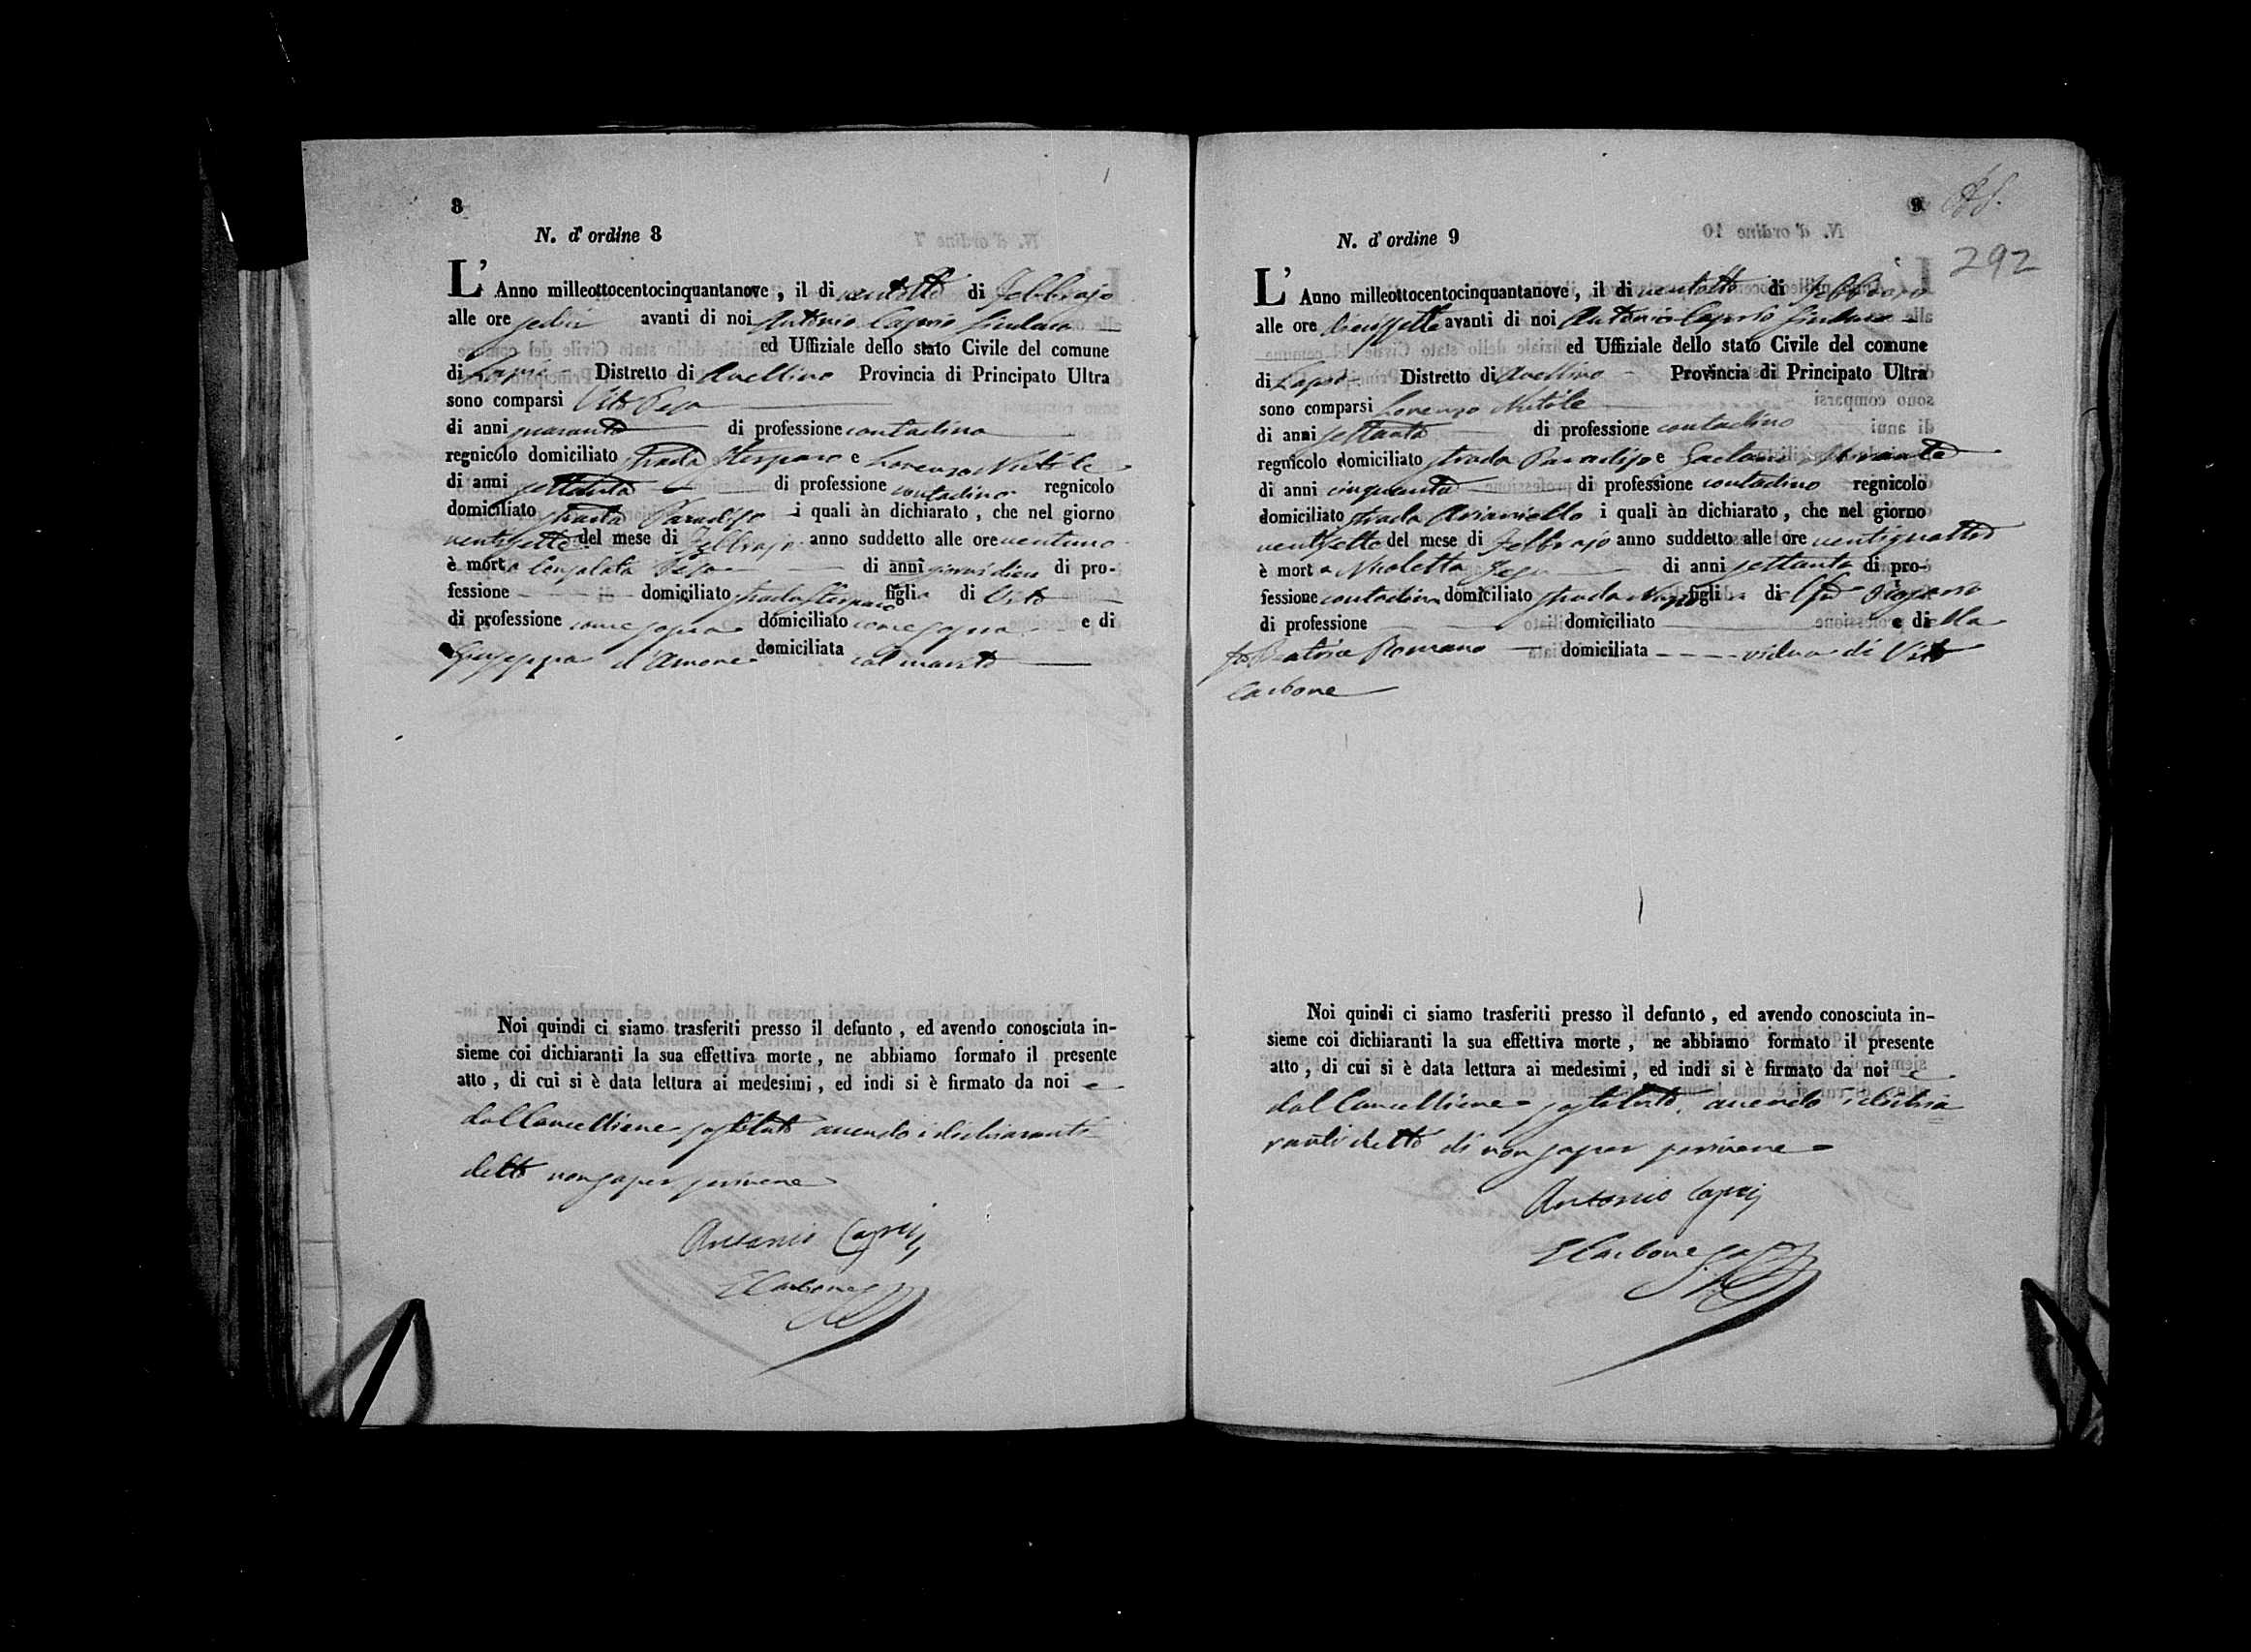 8
N. d'ordine 8
L'Anno milleottocentocinquantanove, il di ventotto di Febbrajo
alle ore sedici avanti di noi Antonio Caprio Sindaco
ed Uffiziale dello stato Civile del comune
di Lapio Distretto di Avellino Provincia di Principato Ultra
sono comparsi Vito
di anni quaranta di professione contadino
regnicolo domiciliato strada e Lorenzo
di anni settanta di professione contadino regnicolo
domiciliato strada Paradiso i quali àn dichiarato, che nel giorno
ventisette del mese di Febbrajo anno suddetto alle ore ventuno
è morta di anni giorni dieci di pro-
fessione domiciliato strada figlia di Vito
di professione come sopra domiciliato come sopra e di
Giuseppa d'Amore domiciliata col marito
Noi quindi ci siamo trasferiti presso il defunto, ed avendo conosciuta in-
sieme coi dichiaranti la sua effettiva morte, ne abbiamo formato il presente
atto, di cui si è data lettura ai medesimi, ed indi si è firmato da noi e
dal Cancelliere sostituto avendo i dichiaranti
detto non saper scrivere
Antonio Caprij
E Carbone
9
292
N. d'ordine 9
L'Anno milleottocentocinquantanove, il di ventotto di Febbrajo
alle ore diecissette avanti di noi Antonio Caprio Sindaco
ed Uffiziale dello stato Civile del comune
di Lapio Distretto di Avellino Provincia di Principato Ultra
sono comparsi Lorenzo
di anni settanta di professione contadino
regnicolo domiciliato strada Paradiso e Gaetano
di anni cinquanta di professione contadino regnicolo
domiciliato strada Arianiello i quali àn dichiarato, che nel giorno
ventisette del mese di Febbrajo anno suddetto alle ore ventiquattro
è morta Nicoletta di anni settanta di pro-
fessione contadina domiciliato strada figlia di
di professione domiciliato e della
fu Beatrice Romano domiciliata vidua di Vito
Carbone
Noi quindi ci siamo trasferiti presso il defunto, ed avendo conosciuta in-
sieme coi dichiaranti la sua effettiva morte, ne abbiamo formato il presente
atto, di cui si è data lettura ai medesimi, ed indi si è firmato da noi e
dal Cancelliere sostituto, avendo i dichia
ranti detto di non saper scrivere
Antonio Caprij
E Carbone